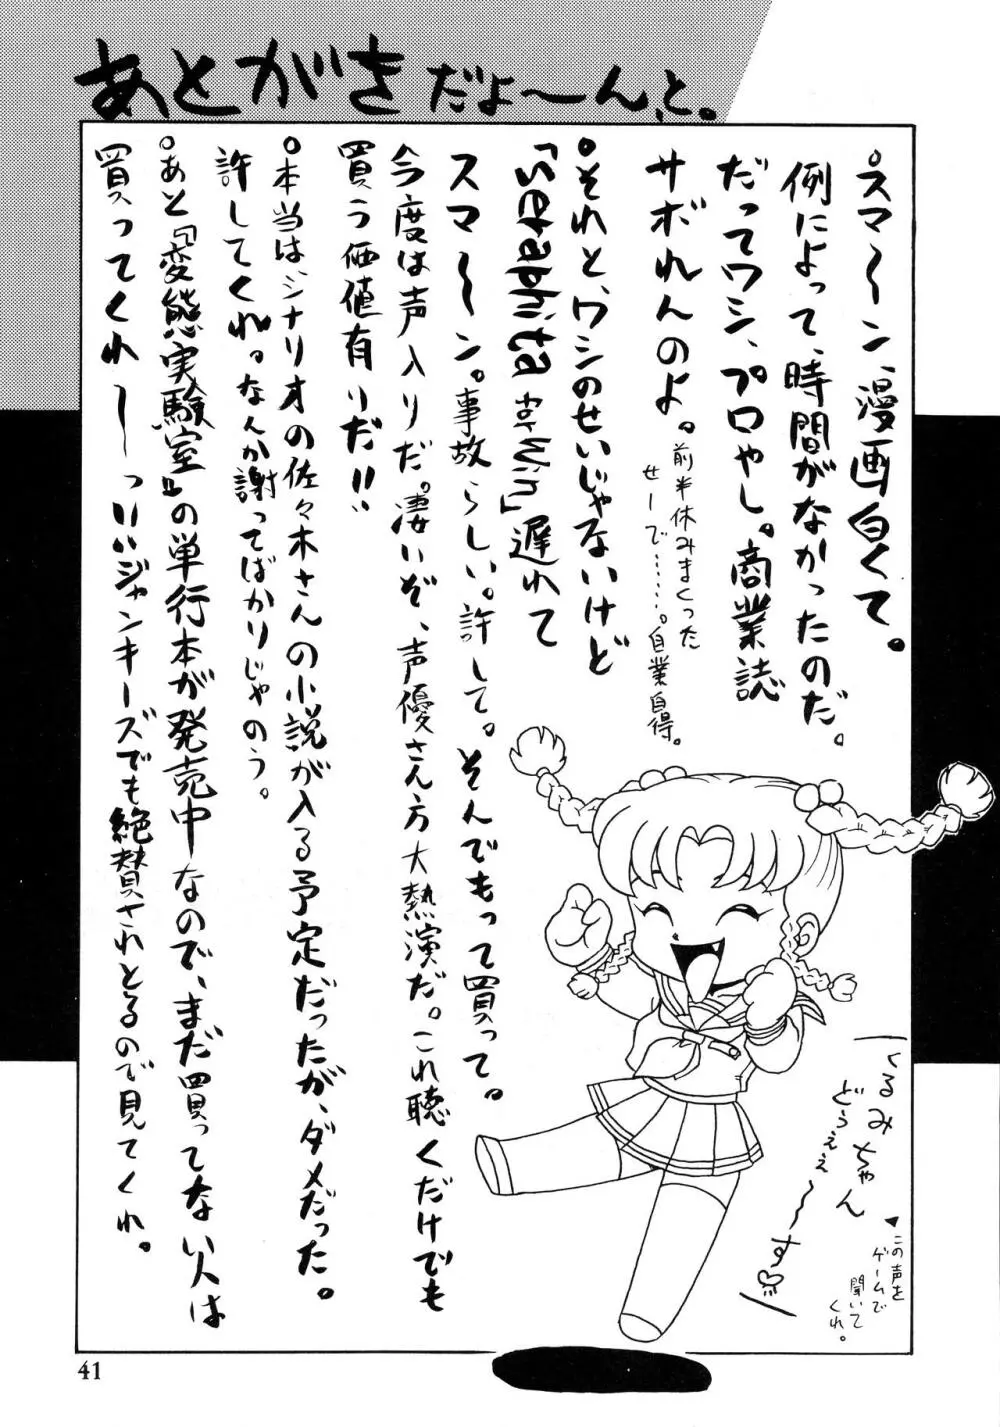 あとがきだよ〜ん、と。
。スマ〜ン、漫画白くて。
例によって、時間がなかったのだ。
だってワシ、プロやし。商業誌
サボれんのよ。
前半休みまくった
せーで……。自業自得。
。それと、ワシのせいじゃないけど
「Serabhita for Win」遅れて
スマ〜ン。事故らしい。許して。そんでもって買って。
今度は声入りだ。凄いぞ、声優さん方大熱演だ。これ聴くだけでも
買う価値有りだ!!
。本当はシナリオの佐々木さんの小説が入る予定だったが、ダメだった。
許してくれ。なんか謝ってばかりじゃのう。
。あと『変態実験室』の単行本が発売中なので、まだ買ってない人は
買ってくれ〜〜っいいジャンキーズでも絶賛されとるので見てくれ。
くるみちゃん
どぅぇぇ〜〜す♡
この声を
ゲームで
聞いて
くれ。
41